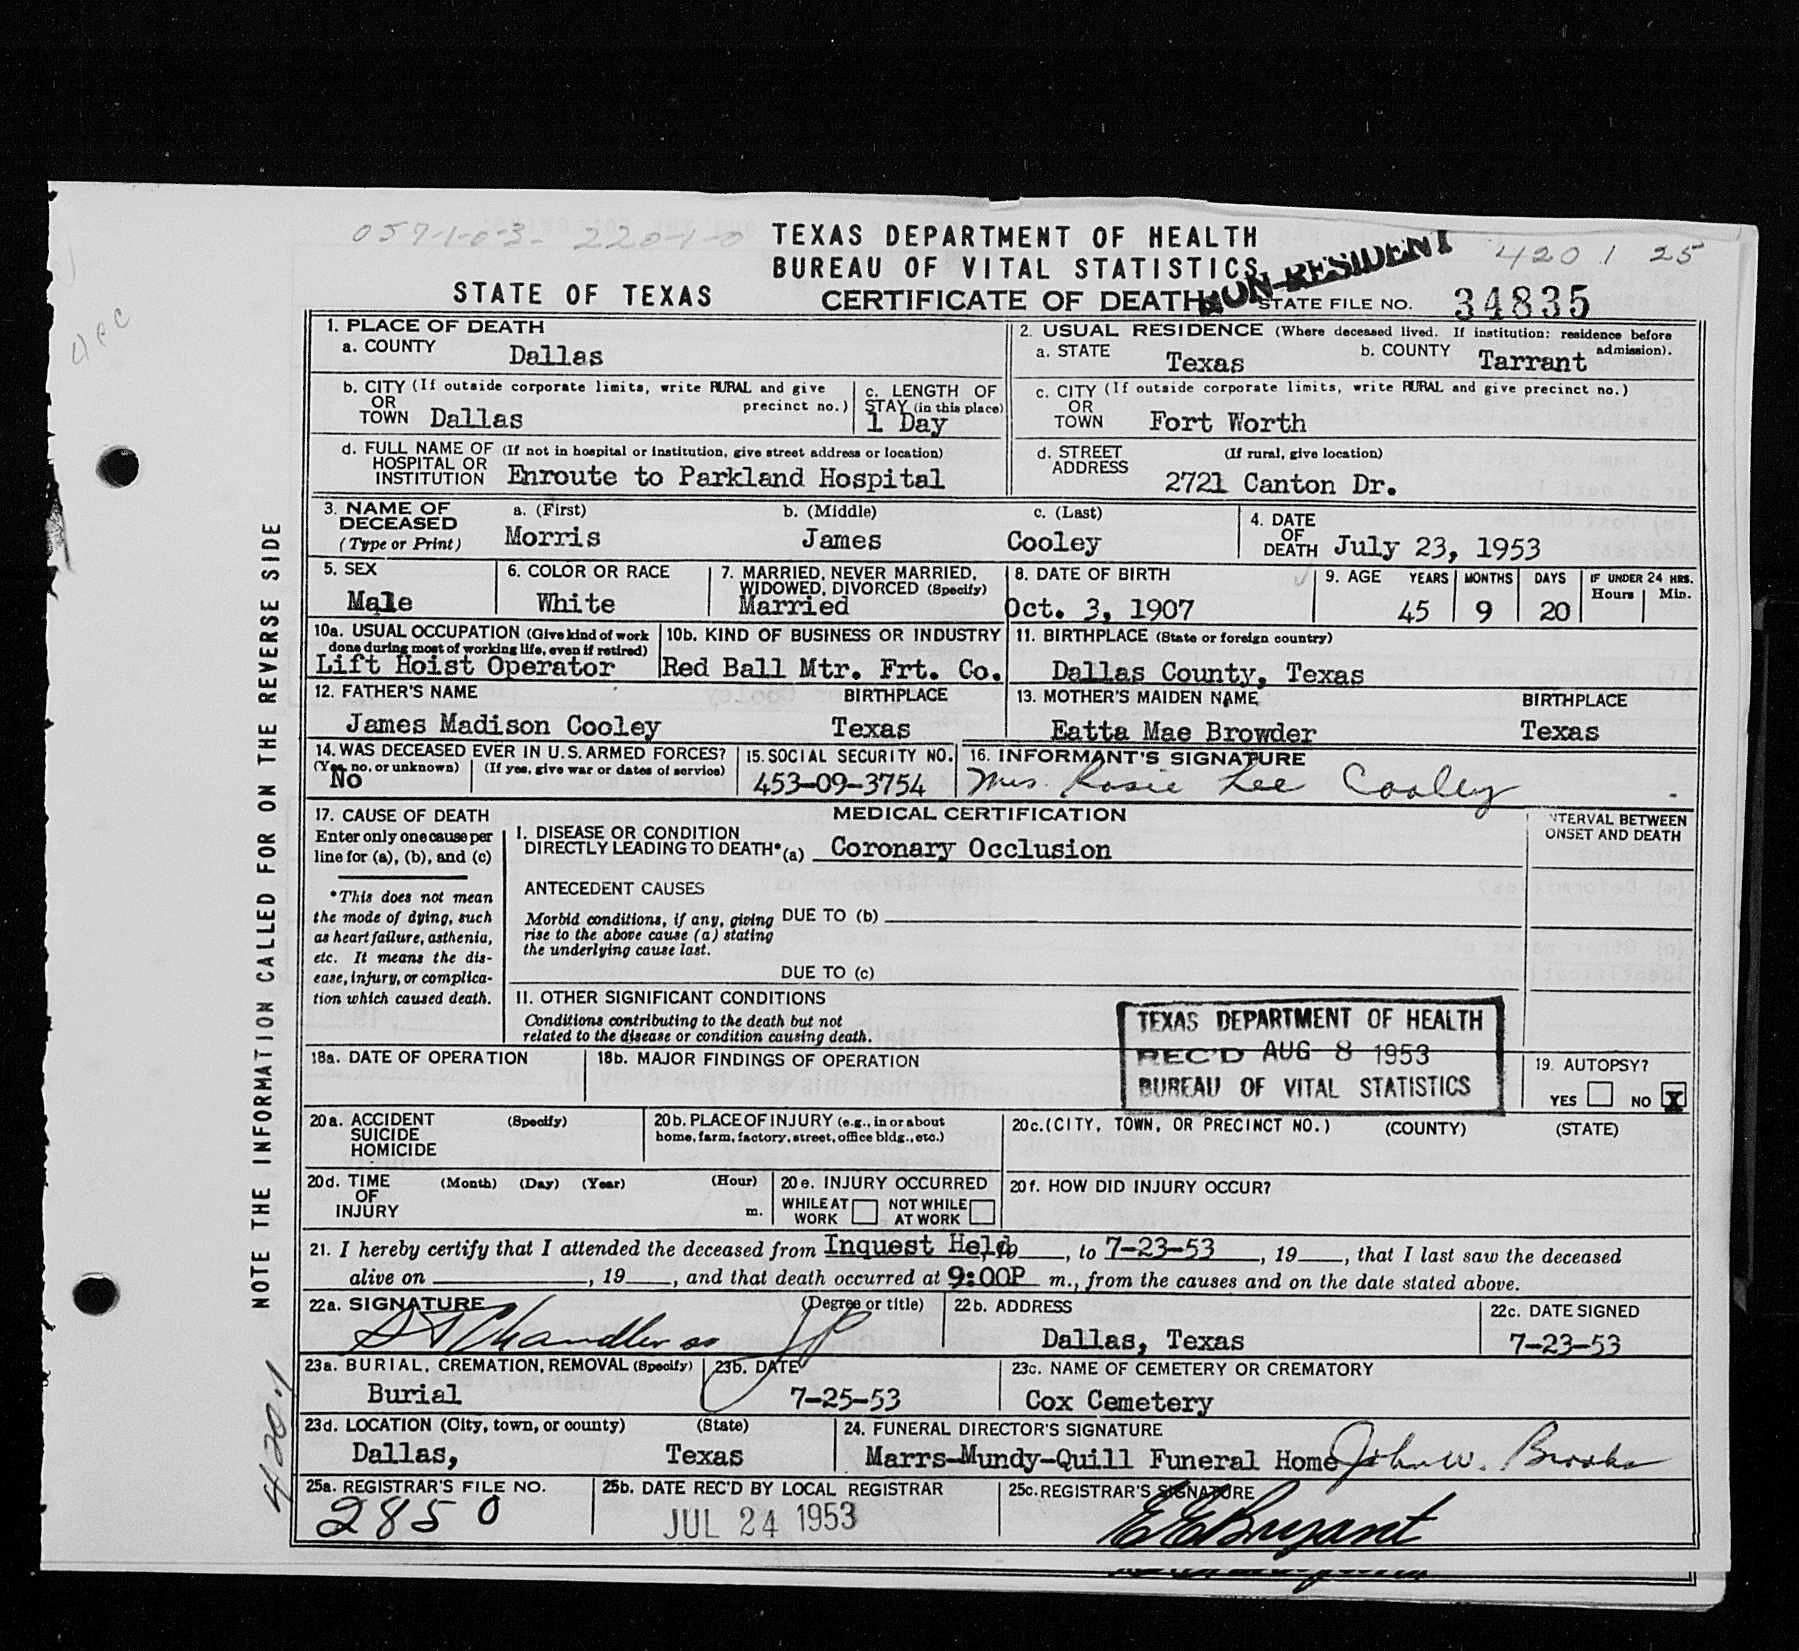 057-1-0-3- 220-1-0
TEXAS DEPARTMENT OF HEALTH
BUREAU OF VITAL STATISTICS
STATE OF TEXAS
CERTIFICATE OF DEATH
NON-RESIDENT
420.1 25
STATE FILE NO. 34835
NOTE THE INFORMATION CALLED FOR ON THE REVERSE SIDE
420.1
1. PLACE OF DEATH
a. COUNTY Dallas
2. USUAL RESIDENCE (Where deceased lived. If institution: residence before admission).
a. STATE Texas b. COUNTY Tarrant
b. CITY (If outside corporate limits, write RURAL and give precinct no.)
OR TOWN Dallas
c. LENGTH OF STAY (in this place)
1 Day
c. CITY (If outside corporate limits, write RURAL and give precinct no.)
OR TOWN Fort Worth
d. FULL NAME OF HOSPITAL OR INSTITUTION (If not in hospital or institution, give street address or location)
Enroute to Parkland Hospital
d. STREET ADDRESS (If rural, give location)
2721 Canton Dr.
3. NAME OF DECEASED (Type or Print)
a. (First) b. (Middle) c. (Last)
Morris James Cooley
4. DATE OF DEATH July 23, 1953
5. SEX
Male
6. COLOR OR RACE
White
7. MARRIED, NEVER MARRIED, WIDOWED, DIVORCED (Specify)
Married
8. DATE OF BIRTH
Oct. 3, 1907
9. AGE YEARS MONTHS DAYS IF UNDER 24 HRS. Hours Min.
45 9 20
10a. USUAL OCCUPATION (Give kind of work done during most of working life, even if retired)
Lift Hoist Operator
10b. KIND OF BUSINESS OR INDUSTRY
Red Ball Mtr. Frt. Co.
11. BIRTHPLACE (State or foreign country)
Dallas County, Texas
12. FATHER'S NAME BIRTHPLACE
James Madison Cooley Texas
13. MOTHER'S MAIDEN NAME BIRTHPLACE
Eatta Mae Browder Texas
14. WAS DECEASED EVER IN U.S. ARMED FORCES?
(Yes, no, or unknown) (If yes, give war or dates of service)
No
15. SOCIAL SECURITY NO.
453-09-3754
16. INFORMANT'S SIGNATURE
Mrs. Rosie Lee Cooley
17. CAUSE OF DEATH
Enter only one cause per line for (a), (b), and (c)
*This does not mean the mode of dying, such as heart failure, asthenia, etc. It means the disease, injury, or complication which caused death.
MEDICAL CERTIFICATION
I. DISEASE OR CONDITION
DIRECTLY LEADING TO DEATH* (a) Coronary Occlusion
NTERVAL BETWEEN
ONSET AND DEATH
ANTECEDENT CAUSES
Morbid conditions, if any, giving rise to the above cause (a) stating the underlying cause last.
DUE TO (b)
DUE TO (c)
II. OTHER SIGNIFICANT CONDITIONS
Conditions contributing to the death but not related to the disease or condition causing death.
TEXAS DEPARTMENT OF HEALTH
REC'D AUG 8 1953
BUREAU OF VITAL STATISTICS
18a. DATE OF OPERATION
18b. MAJOR FINDINGS OF OPERATION
19. AUTOPSY?
YES NO X
20a. ACCIDENT SUICIDE HOMICIDE (Specify)
20b. PLACE OF INJURY (e.g., in or about home, farm, factory, street, office bldg., etc.)
20c. (CITY, TOWN, OR PRECINCT NO.) (COUNTY) (STATE)
20d. TIME OF INJURY (Month) (Day) (Year) (Hour) m.
20e. INJURY OCCURRED
WHILE AT WORK NOT WHILE AT WORK
20f. HOW DID INJURY OCCUR?
21. I hereby certify that I attended the deceased from Inquest Held, 19, to 7-23-53, 19, that I last saw the deceased
alive on , 19, and that death occurred at 9:00P m., from the causes and on the date stated above.
22a. SIGNATURE (Degree or title)
Chandler JP
22b. ADDRESS
Dallas, Texas
22c. DATE SIGNED
7-23-53
23a. BURIAL, CREMATION, REMOVAL (Specify)
Burial
23b. DATE
7-25-53
23c. NAME OF CEMETERY OR CREMATORY
Cox Cemetery
23d. LOCATION (City, town, or county) (State)
Dallas, Texas
24. FUNERAL DIRECTOR'S SIGNATURE
Marrs-Mundy-Quill Funeral Home John W. Brooks
25a. REGISTRAR'S FILE NO.
2850
25b. DATE REC'D BY LOCAL REGISTRAR
JUL 24 1953
25c. REGISTRAR'S SIGNATURE
E E Bryant